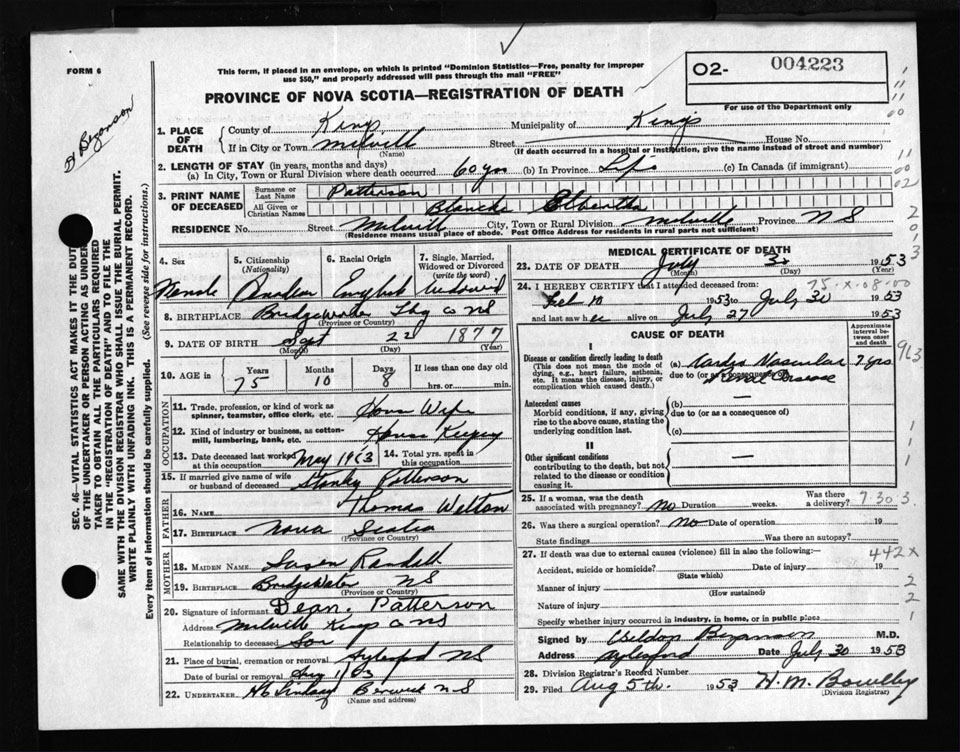 FORM 6
This form, if placed in an envelope, on which is printed "Dominion Statistics—Free, penalty for improper
use $50," and properly addressed will pass through the mail "FREE"
02- 004223
PROVINCE OF NOVA SCOTIA—REGISTRATION OF DEATH
For use of the Department only
H Bezanson
1. PLACE OF DEATH County of Kings Municipality of Kings
If in City or Town Melville Street House No.
(Name) (If death occurred in a hospital or institution, give the name instead of street and number)
2. LENGTH OF STAY (in years, months and days)
(a) In City, Town or Rural Division where death occurred 60 yrs (b) In Province Life (c) In Canada (if immigrant)
3. PRINT NAME OF DECEASED Surname or Last Name Patterson
All Given or Christian Names Blanche Elbertha
RESIDENCE No. Street Melville City, Town or Rural Division Melville Province N S
(Residence means usual place of abode. Post Office Address for residents in rural parts not sufficient)
4. Sex 5. Citizenship (Nationality) 6. Racial Origin 7. Single, Married, Widowed or Divorced (write the word)
Female Canadian English Widowed
8. BIRTHPLACE Bridgewater Lbg Co NS
(Province or Country)
9. DATE OF BIRTH Sept 22 1877
(Month) (Day) (Year)
10. AGE Years Months Days If less than one day
75 10 8 hrs. or min.
OCCUPATION
11. Trade, profession, or kind of work as spinner, teamster, office clerk, etc. House Wife
12. Kind of industry or business, as cotton-mill, lumbering, bank, etc. House Keeping
13. Date deceased last worked at this occupation May 1953 14. Total yrs. spent in this occupation
15. If married give name of wife or husband of deceased Stanley Patterson
FATHER
16. NAME Thomas Welton
17. BIRTHPLACE Nova Scotia
(Province or Country)
MOTHER
18. MAIDEN NAME Susen Randall
19. BIRTHPLACE Bridgewater NS
(Province or Country)
20. Signature of informant Dean. Patterson
Address Melville Kings Co NS
Relationship to deceased Son
21. Place of burial, cremation or removal Aylesford NS
Date of burial or removal Aug 1/53
22. UNDERTAKER H C Lindsay Berwick N S
(Name and Address)
SEC. 46—VITAL STATISTICS ACT MAKES IT THE DUTY
OF THE UNDERTAKER OR PERSON ACTING AS UNDER-
TAKER TO OBTAIN ALL THE PARTICULARS REQUIRED
IN THE "REGISTRATION OF DEATH" AND TO FILE THE
SAME WITH THE DIVISION REGISTRAR WHO SHALL ISSUE THE BURIAL PERMIT.
WRITE PLAINLY WITH UNFADING INK. THIS IS A PERMANENT RECORD.
Every item of information should be carefully supplied. (See reverse side for instructions.)
MEDICAL CERTIFICATE OF DEATH
23. DATE OF DEATH July 30 1953
(Month) (Day) (Year)
24. I HEREBY CERTIFY that I attended deceased from 75-X-08-00
Feb 10 1953 to July 30 1953
and last saw her alive on July 27 1953
CAUSE OF DEATH
Approximate interval between onset and death
I
Disease or condition directly leading to death
(This does not mean the mode of dying, e.g., heart failure, asthenia, etc. It means the disease, injury, or complication which caused death.)
(a) Cardio Vascular 7 yrs
due to (or as a consequence of) Renal Disease
963
Antecedent causes
Morbid conditions, if any, giving rise to the above cause, stating the underlying condition last.
(b) —
due to (or as a consequence of)
(c)
II
Other significant conditions
contributing to the death, but not related to the disease or condition causing it.
—
25. If a woman, was the death associated with pregnancy? No Duration weeks. Was there a delivery? 7.30.3
26. Was there a surgical operation? No Date of operation 19
State findings Was there an autopsy?
27. If death was due to external causes (violence) fill in also the following:— 442X
Accident, suicide or homicide? Date of injury 19
(State which)
Manner of injury
(How sustained)
Nature of injury
Specify whether injury occurred in industry, in home, or in public place
Signed by Weldon Bezanson M.D.
Address Aylesford Date July 30 1953
28. Division Registrar's Record Number
29. Filed Aug 5th. 1953 H. M. Bowlby
(Division Registrar)